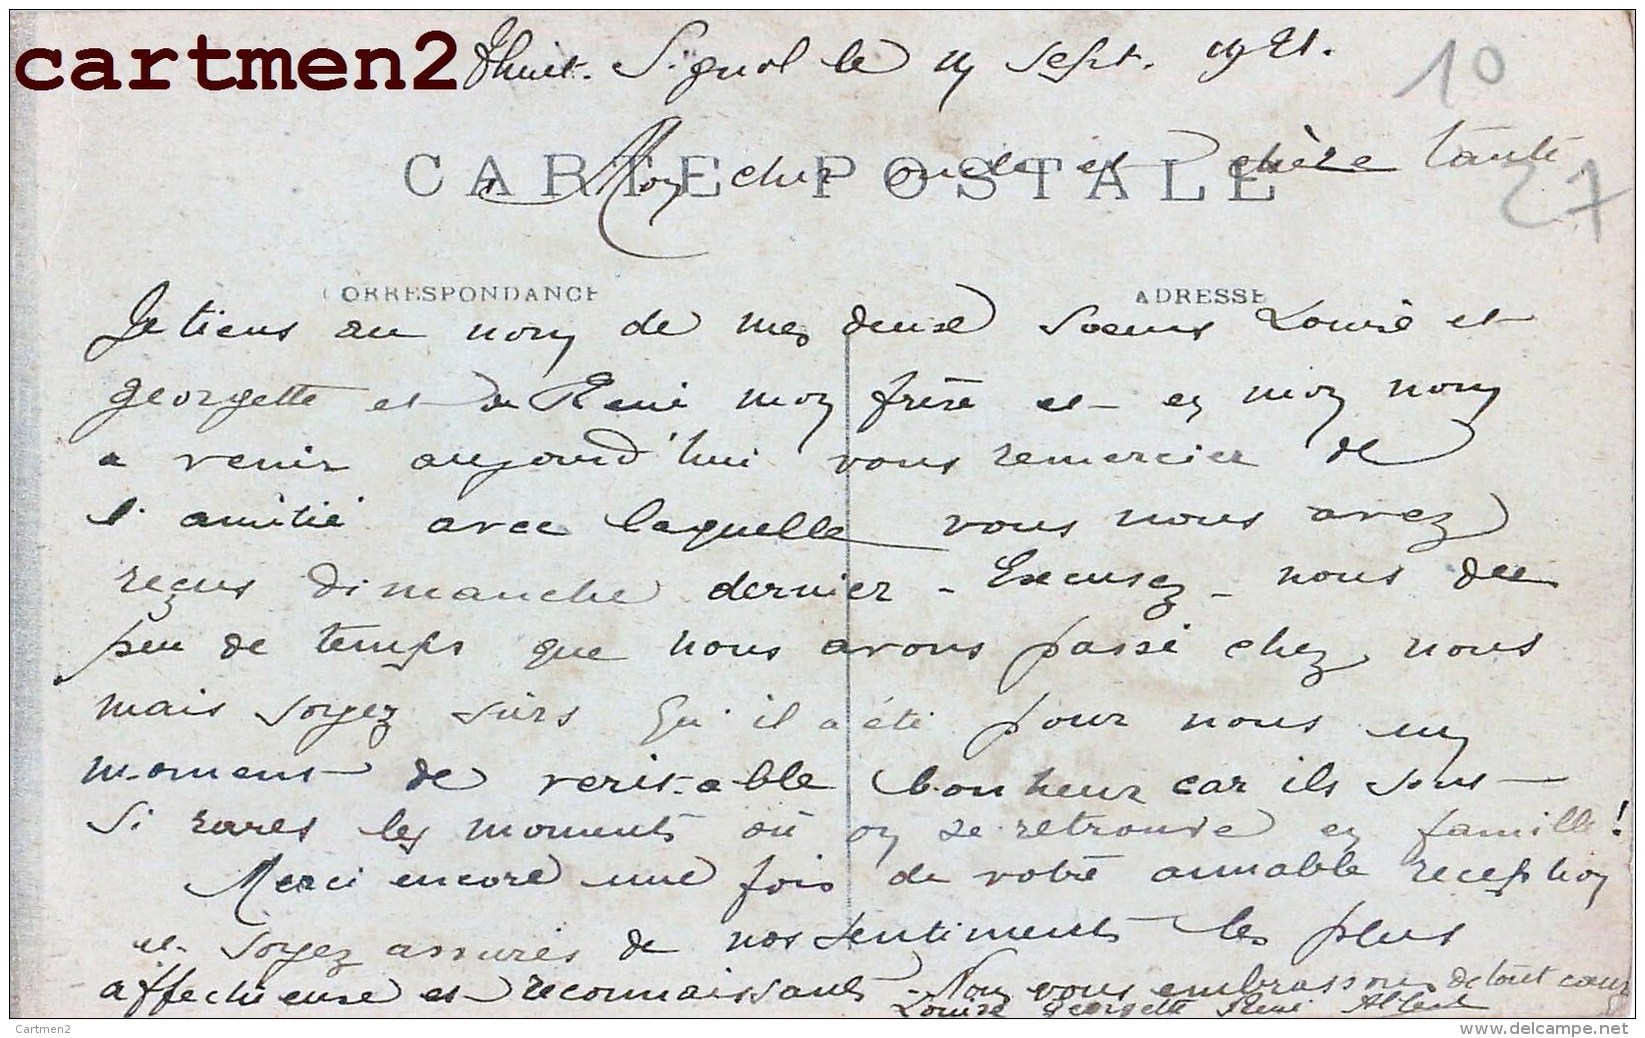 cartmen2
Thuit-Signol le 14 Sept. 1921.
10
CARTE POSTALE
Mon cher oncle et chère tante
27
CORRESPONDANCE
ADRESSE
Je tiens au nom de mes deux soeurs Louise et
georgette et de René mon frère et en mon nom
a venir aujourd'hui vous remercier de
l'amitié avec laquelle vous nous avez
reçus dimanche dernier - Excusez-nous du
peu de temps que nous avons passé chez vous
mais soyez sûrs qu'il a été pour nous un
moment de veritable bonheur car ils sont
si rares les moments où on se retrouve en famille !
Merci encore une fois de votre aimable reception
et soyez assurés de nos sentiments les plus
affectueux et reconnaissants - Nous vous embrassons de tout coeur
Louise georgette René Albert
Cartmen2
www.delcampe.net